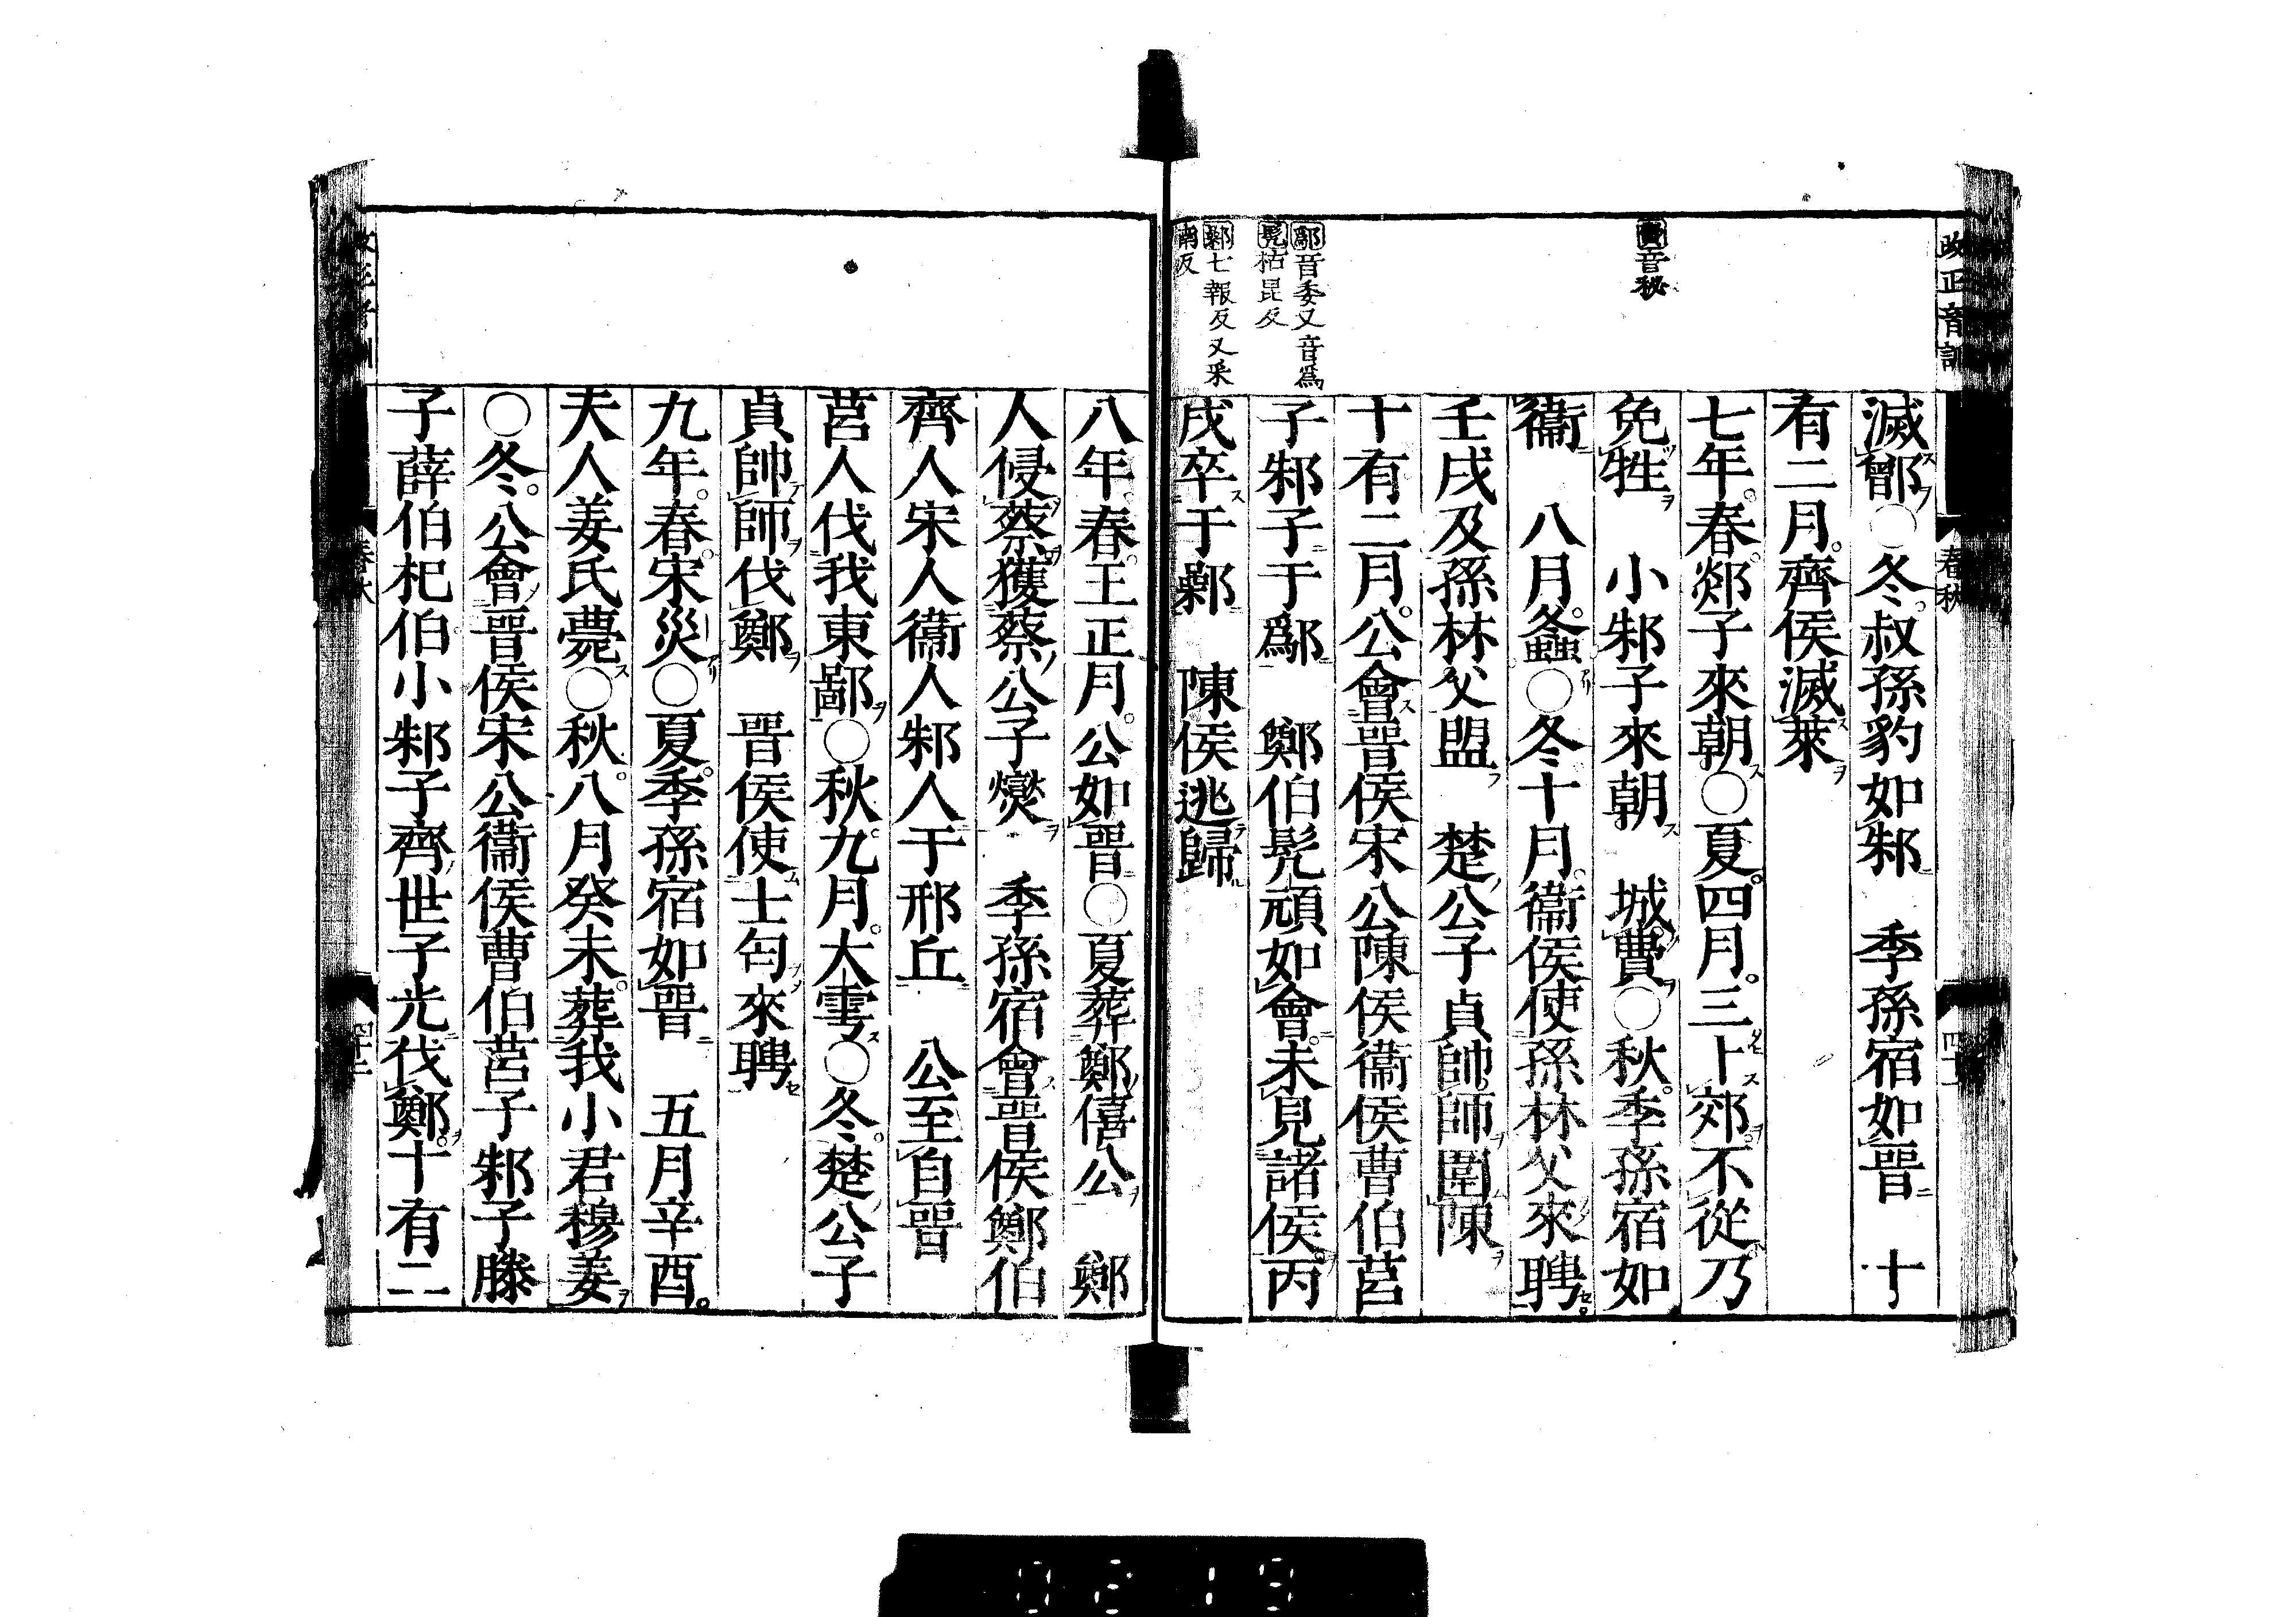 改正音訓
春秋
四十一
費音秘
鄬音委又音爲
髠枯昆反
鄵七報反又采
南反
滅鄫○冬叔孫豹如邾　季孫宿如晉　十
有二月齊侯滅萊
七年春郯子來朝○夏四月三卜郊不從乃
免牲　小邾子來朝　城費○秋季孫宿如
衞　八月螽○冬十月衞侯使孫林父來聘
壬戌及孫林父盟　楚公子貞帥師圍陳
十有二月公會晉侯宋公陳侯衞侯曹伯莒
子邾子于鄬　鄭伯髠頑如會未見諸侯丙
戌卒于鄵　陳侯逃歸
八年春王正月公如晉○夏葬鄭僖公　鄭
人侵蔡獲蔡公子燮　季孫宿會晉侯鄭伯
齊人宋人衞人邾人于邢丘　公至自晉
莒人伐我東鄙○秋九月大雩○冬楚公子
貞帥師伐鄭　晉侯使士匄來聘
九年春宋災○夏季孫宿如晉　五月辛酉
夫人姜氏薨○秋八月癸未葬我小君穆姜
○冬公會晉侯宋公衞侯曹伯莒子邾子滕
子薛伯杞伯小邾子齊世子光伐鄭十有二
春秋
0219